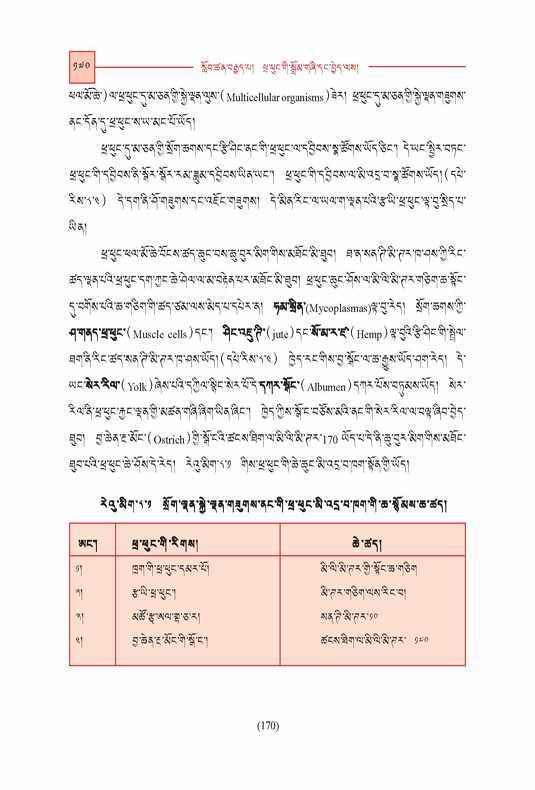 ༡༧༠
སློབ་ཚན་བརྒྱད་པ། ཕྲ་ཕུང་གི་སྒྲོམ་གཞི་དང་བྱེད་ལས།
ཕལ་མོ་ཆེ་) ལ་ཕྲ་ཕུང་དུ་མ་ཅན་གྱི་སྐྱེ་ལྡན་ལུས་( Multicellular organisms ) ཟེར། ཕྲ་ཕུང་དུ་མ་ཅན་གྱི་སྐྱེ་ལྡན་གཟུགས་
ནང་དོན་དུ་ཕྲ་ཕུང་ས་ཡ་མང་པོ་ཡོད།
ཕྲ་ཕུང་དུ་མ་ཅན་གྱི་སྲོག་ཆགས་དང་རྩི་ཤིང་ནང་གི་ཕྲ་ཕུང་ལ་དབྱིབས་སྣ་ཚོགས་ཡོད་ཅིང་། དེ་ཡང་སྤྱིར་བཏང་
ཕྲ་ཕུང་གི་དབྱིབས་ནི་སྒོར་སྒོར་རམ་ཟླུམ་དབྱིབས་ཡིན་ཡང་། ཕྲ་ཕུང་གི་དབྱིབས་ལ་མི་འདྲ་བ་སྣ་ཚོགས་ཡོད། ( དཔེ་
རིས་༨་༤ ) དེ་དག་ནི་ཤོ་གཟུགས་དང་འཇོང་གཟུགས། དེ་མིན་རིང་ལ་ཡལ་ག་ལྡན་པའི་རྩ་ཡི་ཕྲ་ཕུང་ལྟ་བུ་སྲིད་པ་
ཡིན།
ཕྲ་ཕུང་ཕལ་མོ་ཆེ་བོངས་ཚད་ཆུང་བས་ཆུ་བུར་མིག་གིས་མཐོང་མི་ཐུབ། ཐ་ན་སན་ཊི་མི་ཊར་ཁ་ཤས་ཀྱི་རིང་
ཚད་ལྡན་པའི་ཕྲ་ཕུང་དག་ཀྱང་ཆེ་ཤེལ་ལ་མ་བརྟེན་པར་མཐོང་མི་ཐུབ། ཕྲ་ཕུང་ཆུང་ཤོས་ལ་མི་ལི་མི་ཊར་གཅིག་ཆ་སྟོང་
དུ་བགོས་པའི་ཆ་གཅིག་གི་ཚད་ཙམ་ལས་མེད་པ་དཔེར་ན། ཧམ་སྲིན་(Mycoplasmas)ལྟ་བུ་རེད། སྲོག་ཆགས་ཀྱི་
ཤ་གནད་ཕྲ་ཕུང་( Muscle cells ) དང་། ཤིང་འཇུ་ཊི་( jute ) དང་སོ་མ་ར་ཛ་( Hemp ) ལྟ་བུའི་རྩི་ཤིང་གི་སྤྲེལ་
ཐག་ནི་རིང་ཚད་སན་ཊི་མི་ཊར་ཁ་ཤས་ཡོད། ( དཔེ་རིས་༨་༤ ) ཁྱེད་རང་གིས་བྱ་སྒོང་ལ་ཆ་རྒྱུས་ཡོད་ཤག་རེད། དེ་
ཡང་སེར་རིལ་( Yolk ) ཞེས་པའི་དཀྱིལ་སྙིང་སེར་པོ་དེ་དཀར་སྒོང་( Albumen ) དཀར་པོས་བཏུམས་ཡོད། སེར་
རིལ་ནི་ཕྲ་ཕུང་རྐྱང་ལྡན་གྱི་མཚན་གཞི་ཞིག་ཡིན་ཞིང་། ཁྱེད་ཀྱིས་སྒོ་ང་བཙོས་མའི་ནང་གི་སེར་རིལ་ལ་བལྟ་ཞིབ་བྱེད་
ཐུབ། བྱ་ཆེན་རྔ་མོང་( Ostrich ) གྱི་སྒོ་ངའི་ཚངས་ཐིག་ལ་མི་ལི་མི་ཊར་170 ཡོད་པ་དེ་ནི་ཆུ་བུར་མིག་གིས་མཐོང་
ཐུབ་པའི་ཕྲ་ཕུང་ཆེ་ཤོས་དེ་རེད། རེའུ་མིག་༨་༡ གིས་ཕྲ་ཕུང་གི་ཆེ་ཆུང་མི་འདྲ་བ་ཁག་སྟོན་གྱི་ཡོད།
རེའུ་མིག་༨་༡ སྲོག་ལྡན་སྐྱེ་ལྡན་གཟུགས་ནང་གི་ཕྲ་ཕུང་མི་འདྲ་བ་ཁག་གི་ཆ་སྙོམས་ཆ་ཚད།
ཨང་། ཕྲ་ཕུང་གི་རིགས། ཆེ་ཚད།
༡། ཁྲག་གི་ཕྲ་ཕུང་དམར་པོ། མི་ལི་མི་ཊར་གྱི་སྟོང་ཆ་གཅིག
༢། རྩ་ཡི་ཕྲ་ཕུང་། མི་ཊར་གཅིག་ལས་རིང་བ།
༣། མཚོ་རྩྭ་ཨལ་གྷ་ཅ་ར། སན་ཊི་མི་ཊར་༡༠
༤། བྱ་ཆེན་རྔ་མོང་གི་སྒོ་ང་། ཚངས་ཐིག་ལ་མི་ལི་མི་ཊར་ ༡༧༠
(170)